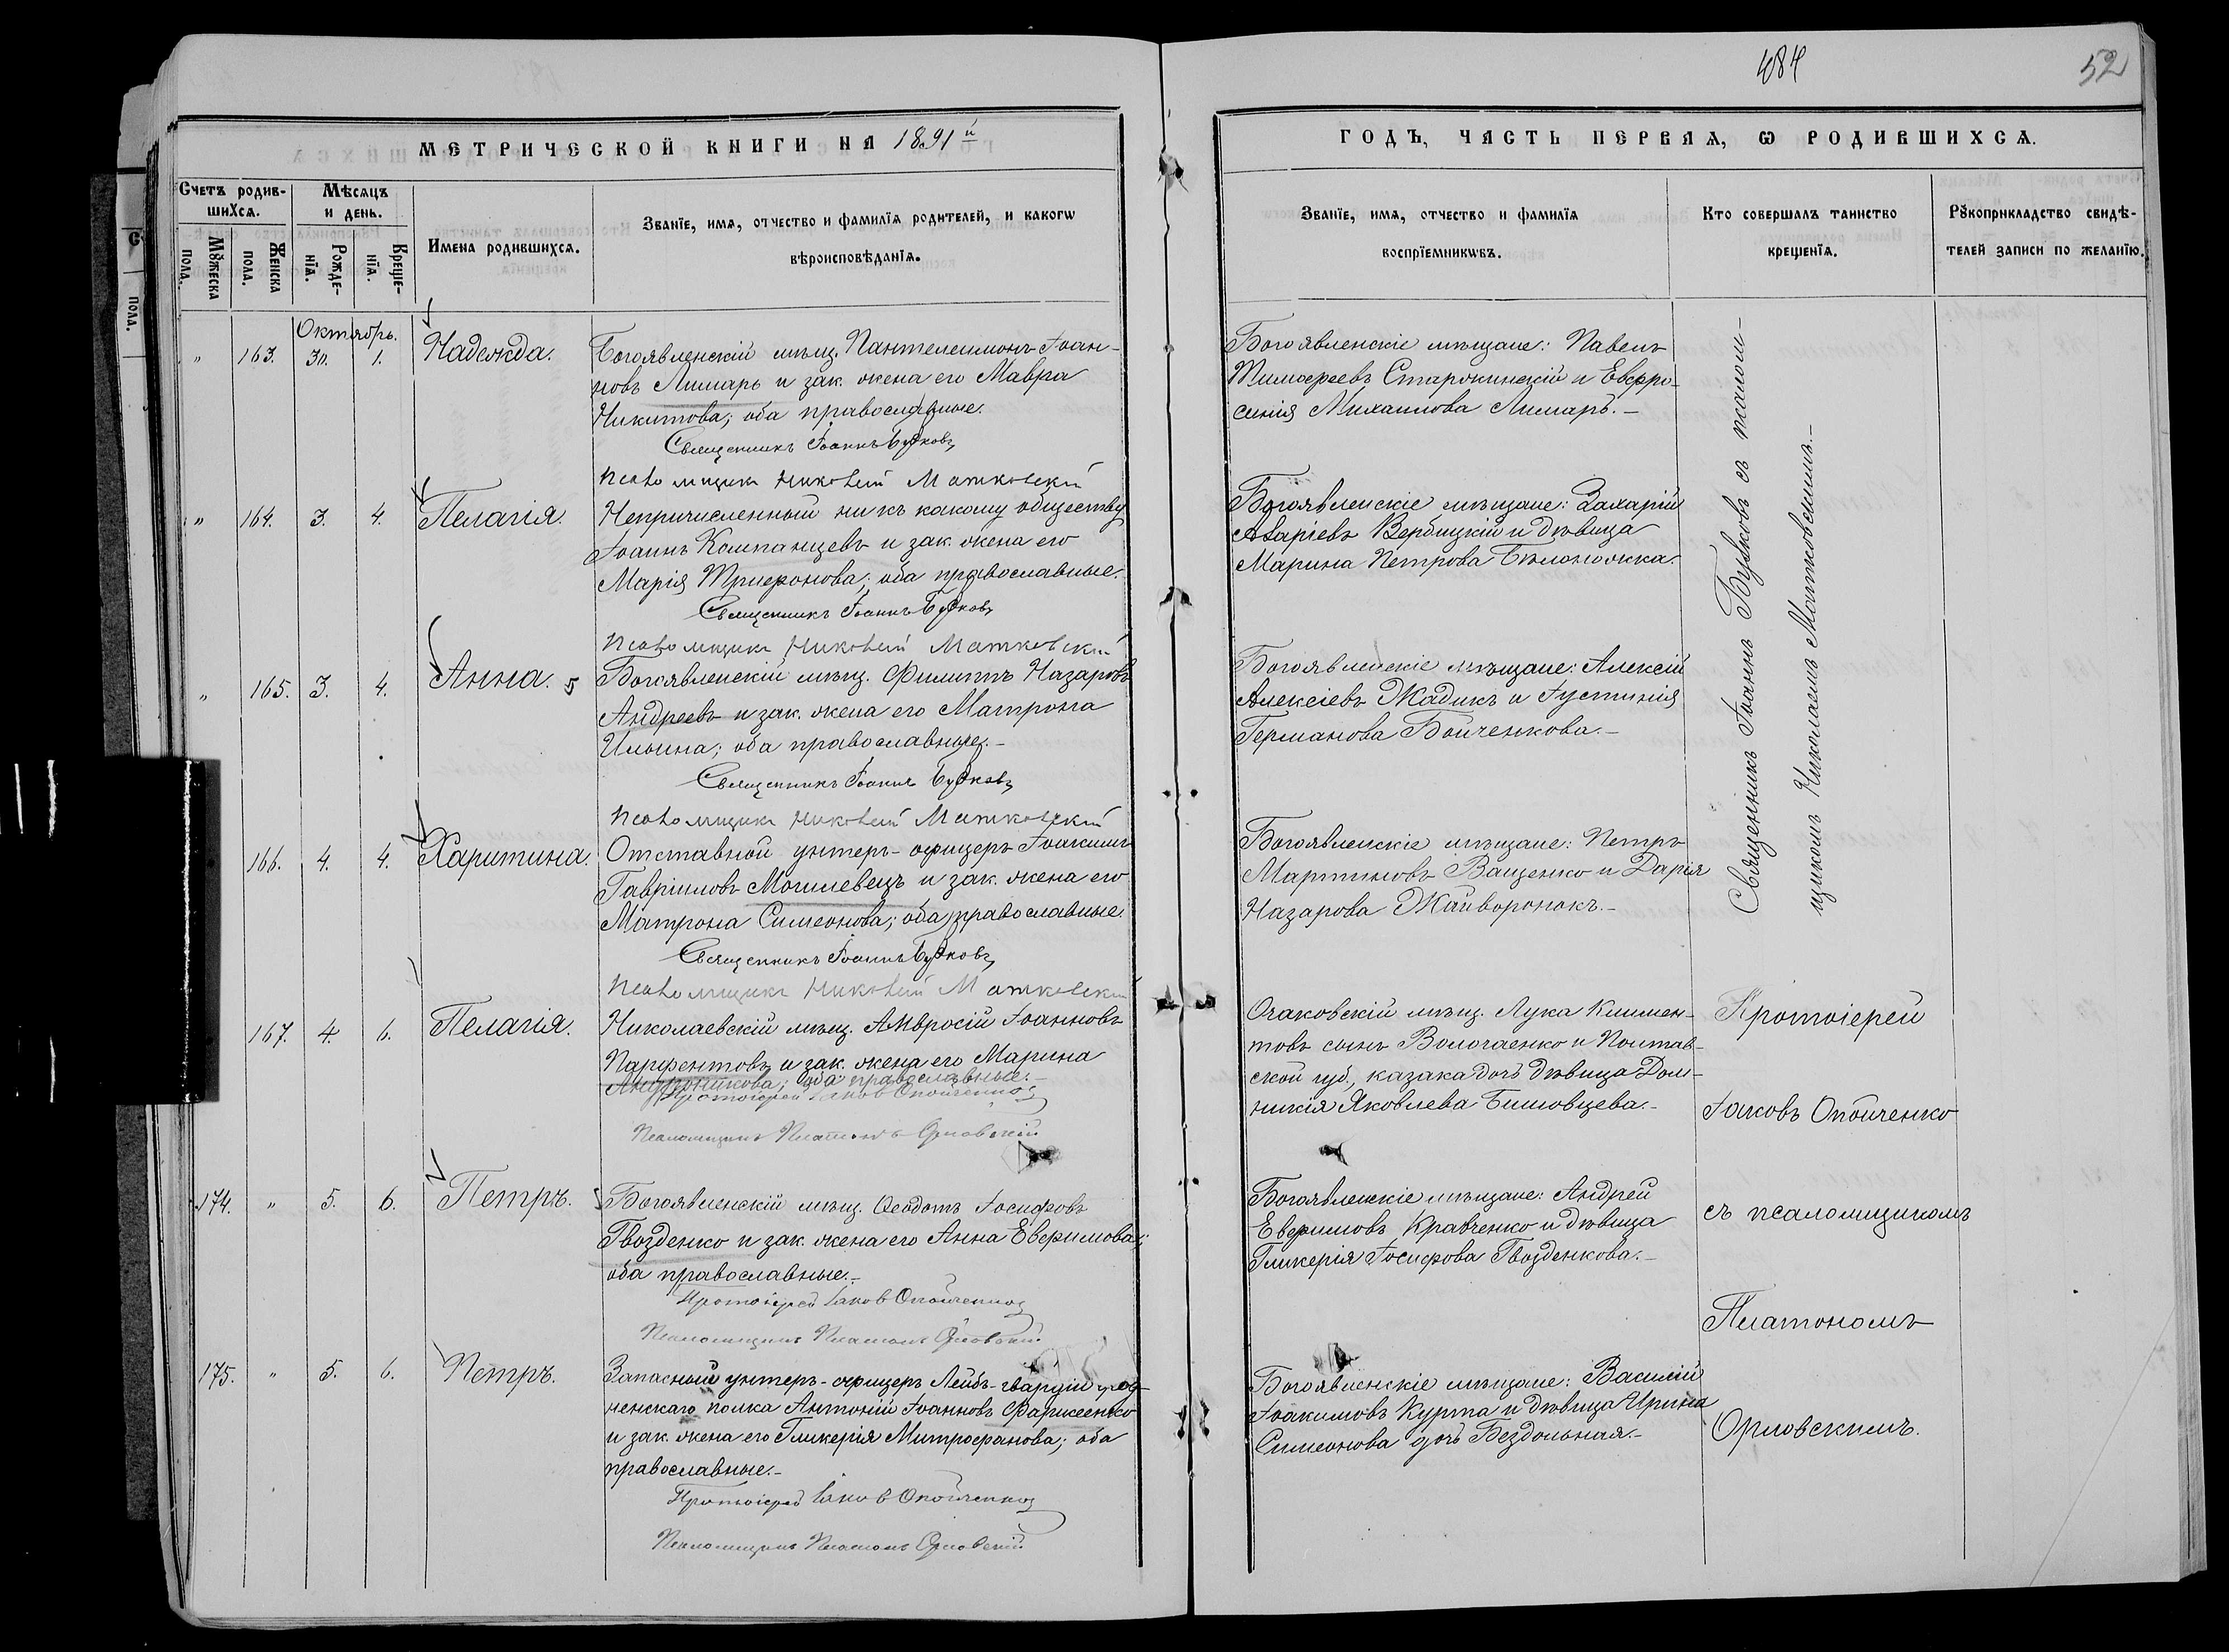 484
52
МЕТРИЧЕСКОЙ КНИГИ НА 1891й
ГОДЪ, ЧАСТЬ ПЕРВАЯ, Ѡ РОДИВШИХСѦ.
Счетъ родив-
шихсѧ.
Мѣсяцъ
и день.
Мꙋжеска
пола.
Женска
пола.
Рожде-
нїѧ.
Креще-
нїѧ.
Имена родившихсѧ.
Званїе, имѧ, отчество и фамилїѧ родителей, и какогѡ
вѣроисповѣданїѧ.
Званїе, имѧ, отчество и фамилїѧ
воспрїемникѡвъ.
Кто совершалъ таинство
крещенїѧ.
Рꙋкоприкладство свидѣ-
телей записи по желанїю.
Октябрь.
" 163. 30. 1. Надежда.
Богоявленскій мѣщ. Пантелеимонъ Іоан-
новъ Лимарь и зак. жена его Мавра
Никитова; оба православные.
Священникъ Іоаннъ Бутковъ
Псаломщикъ Николай Матковскій
Богоявленскіе мѣщане: Павелъ
Тимофеевъ Старокинскій и Евфро-
синія Михаилова Лимарь.-
" 164. 3. 4. Пелагія.
Непричисленный ни къ какому обществу
Іоаннъ Компанцевъ и зак. жена его
Марія Трифонова; оба православные.
Священникъ Іоаннъ Бутковъ
Псаломщикъ Николай Матковскій
Богоявленскіе мѣщане: Захарій
Азаріевъ Вербицкій и дѣвица
Марина Петрова Бѣлоножка.
" 165. 3. 4. Анна.
Богоявленскій мѣщ. Филиппъ Назаровъ
Андреевъ и зак. жена его Матрона
Ильина; оба православные.-
Священникъ Іоаннъ Бутковъ
Псаломщикъ Николай Матковскій
Богоявленскіе мѣщане: Алексій
Алексіевъ Жадикъ и Іустинія
Германова Бойченкова.-
166. 4. 4. Харитина.
Отставной унтеръ-офицеръ Іоакимъ
Гавріиловъ Могилевецъ и зак. жена его
Матрона Симеонова; оба православные
Священникъ Іоаннъ Бутковъ
Псаломщикъ Николай Матковскій
Богоявленскіе мѣщане: Петръ
Мартиновъ Ващенко и Дарія
Назарова Жайворонокъ.-
Священникъ Іоаннъ Бутковъ съ псалом-
щикомъ Николаемъ Матковскимъ.-
167. 4. 6. Пелагія.
Николаевскій мѣщ. Амвросій Іоанновъ
Парфентовъ и зак. жена его Марина
Андроникова; оба православные.-
Протоіерей Іаковъ Опойченко
Псаломщикъ Платонъ Орловскій
Очаковскій мѣщ. Лука Климен-
товъ сынъ Волочаенко и Полтав-
ской губ., казака дочь дѣвица Дом-
никія Яковлева Бимовцева.-
174. " 5. 6. Петръ.
Богоявленскій мѣщ. Ѳеодотъ Іосифовъ
Гвозденко и зак. жена его Анна Евфимова;
оба православные.-
Протоіерей Іаковъ Опойченко
Псаломщикъ Платонъ Орловскій
Богоявленскіе мѣщане: Андрей
Евфимовъ Кравченко и дѣвица
Гликерія Іосифова Гвозденкова.-
175. " 5. 6. Петръ.
Запасный унтеръ-офицеръ Лейбъ-гвардіи
ненскаго полка Антоній Іоанновъ Фарисеенко
и зак. жена его Гликерія Митрофанова; оба
православные.-
Протоіерей Іаковъ Опойченко
Псаломщикъ Платонъ Орловскій
Богоявленскіе мѣщане: Василій
Іоакимовъ Курта и дѣвица Ирина
Симеонова дочь Бездольная.-
Протоіерей
Іаковъ Опойченко
съ псаломщикомъ
Платономъ
Орловскимъ.